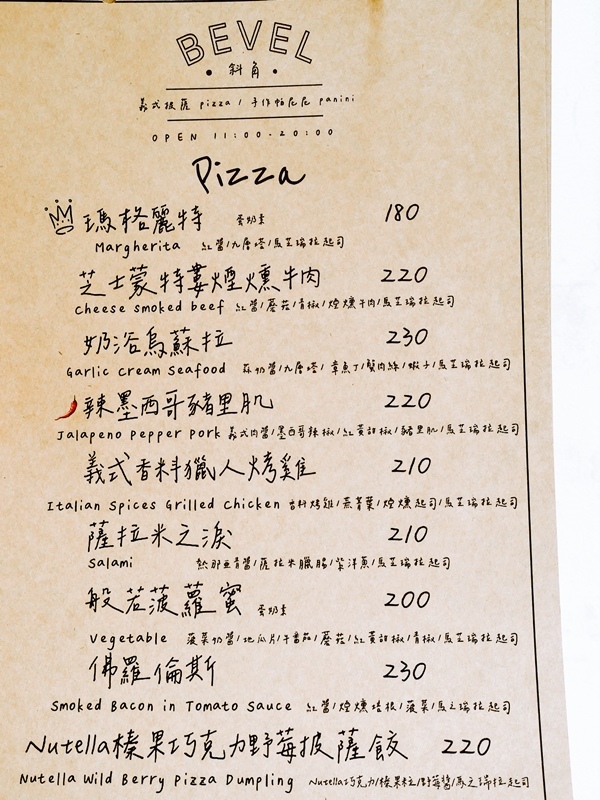 BEVEL
• 斜角 •
義式披薩 pizza / 手作帕尼尼 panini
OPEN 11:00-20:00
Pizza
瑪格麗特 蛋奶素 180
Margherita 紅醬/九層塔/馬芝瑞拉起司
芝士蒙特婁煙燻牛肉 220
Cheese smoked beef 紅醬/蘑菇/青椒/煙燻牛肉/馬芝瑞拉起司
奶浴烏蘇拉 230
Garlic cream seafood 蒜奶醬/九層塔/章魚丁/蟹肉絲/蝦子/馬芝瑞拉起司
辣墨西哥豬里肌 220
Jalapeno pepper pork 義式肉醬/墨西哥辣椒/紅黃甜椒/豬里肌/馬芝瑞拉起司
義式香料獵人烤雞 210
Italian Spices Grilled Chicken 香料烤雞/蕪菁葉/煙燻起司/馬芝瑞拉起司
薩拉米之淚 210
Salami 熱那亞青醬/薩拉米臘腸/紫洋蔥/馬芝瑞拉起司
般若菠蘿蜜 蛋奶素 200
Vegetable 菠菜奶醬/地瓜片/干番茄/蘑菇/紅黃甜椒/青椒/馬芝瑞拉起司
佛羅倫斯 230
Smoked Bacon in Tomato Sauce 紅醬/煙燻培根/菠菜/馬芝瑞拉起司
Nutella榛果巧克力野莓披薩餃 220
Nutella Wild Berry Pizza Dumpling Nutella巧克力/榛果粒/野莓醬/馬芝瑞拉起司